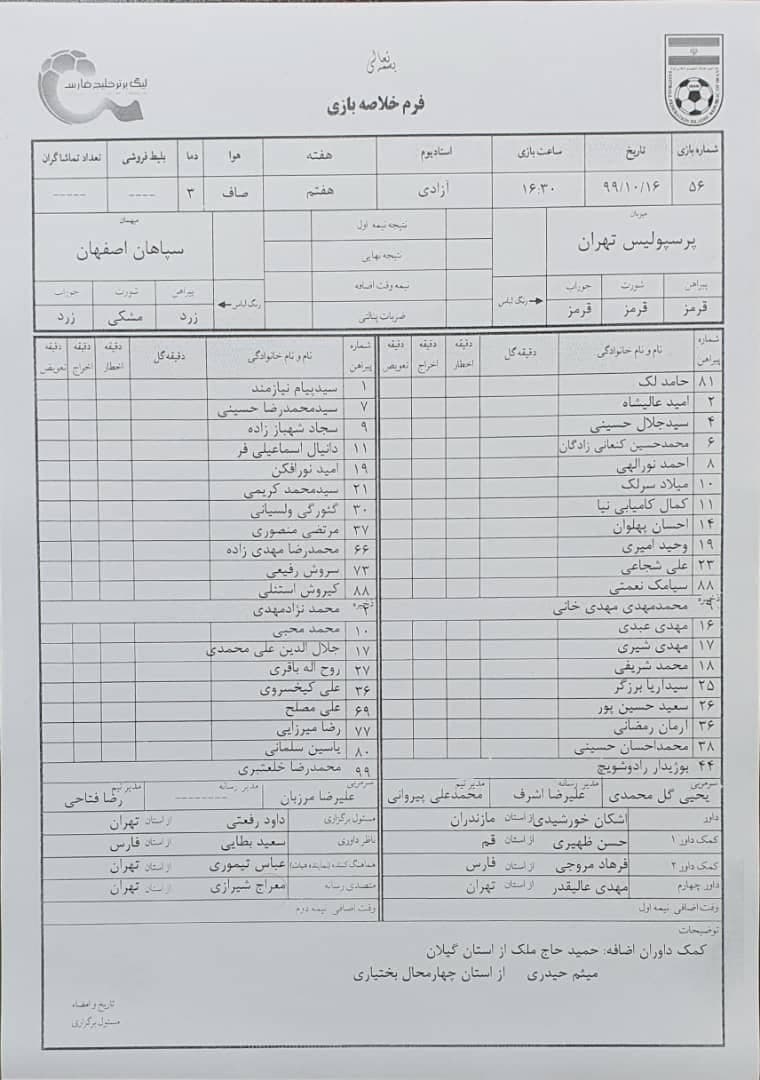 بسمه تعالی
لیگ برتر خلیج فارس
فرم خلاصه بازی
شماره بازی تاریخ ساعت بازی استادیوم هفته هوا دما بلیط فروشی تعداد تماشاگران
۵۶ ۹۹/۱۰/۱۶ ۱۶:۳۰ آزادی هفتم صاف ۳ ---- -----
میزبان نتیجه نیمه اول میهمان
پرسپولیس تهران نتیجه نهایی سپاهان اصفهان
پیراهن شورت جوراب رنگ لباس نیمه وقت اضافه رنگ لباس پیراهن شورت جوراب
قرمز قرمز قرمز ضربات پنالتی زرد مشکی زرد
شماره پیراهن نام و نام خانوادگی دقیقه گل دقیقه اخطار دقیقه اخراج دقیقه تعویض شماره پیراهن نام و نام خانوادگی دقیقه گل دقیقه اخطار دقیقه اخراج دقیقه تعویض
۸۱ حامد لک ۱ سیدپیام نیازمند
۲ امید عالیشاه ۷ سیدمحمدرضا حسینی
۴ سیدجلال حسینی ۹ سجاد شهباز زاده
۶ محمدحسین کنعانی زادگان ۱۱ دانیال اسماعیلی فر
۸ احمد نورالهی ۱۹ امید نورافکن
۱۰ میلاد سرلک ۲۱ سیدمحمد کریمی
۱۱ کمال کامیابی نیا ۳۰ گئورگی ولسیانی
۱۴ احسان پهلوان ۳۷ مرتضی منصوری
۱۹ وحید امیری ۶۶ محمدرضا مهدی زاده
۲۳ علی شجاعی ۷۳ سروش رفیعی
۸۸ سیامک نعمتی ۸۸ کیروش استنلی
ذخیره ۹ محمدمهدی مهدی خانی ذخیره ۲ محمد نژادمهدی
۱۶ مهدی عبدی ۱۰ محمد محبی
۱۷ مهدی شیری ۱۷ جلال الدین علی محمدی
۱۸ محمد شریفی ۲۷ روح اله باقری
۲۵ سیداریا برزگر ۳۶ علی کیخسروی
۲۶ سعید حسین پور ۶۹ علی مصلح
۳۶ آرمان رمضانی ۷۷ رضا میرزایی
۳۸ محمداحسان حسینی ۸۰ یاسین سلمانی
۴۴ بوژیدار رادوشویچ ۹۹ محمدرضا خلعتبری
سرمربی یحیی گل محمدی مدیر رسانه علیرضا اشرف مدیر تیم محمدعلی پیروانی سرمربی علیرضا مرزبان مدیر رسانه -------- مدیر تیم رضا فتاحی
داور اشکان خورشیدی از استان مازندران مسئول برگزاری داود رفعتی از استان تهران
کمک داور ۱ حسن ظهیری از استان قم ناظر داوری سعید بطایی از استان فارس
کمک داور ۲ فرهاد مروجی از استان فارس هماهنگ کننده (نماینده هیات) عباس تیموری از استان تهران
داور چهارم مهدی عالیقدر از استان تهران متصدی رسانه معراج شیرازی از استان تهران
وقت اضافی نیمه اول وقت اضافی نیمه دوم
توضیحات
کمک داوران اضافه: حمید حاج ملک از استان گیلان
میثم حیدری از استان چهارمحال بختیاری
تاریخ و امضاء
مسئول برگزاری